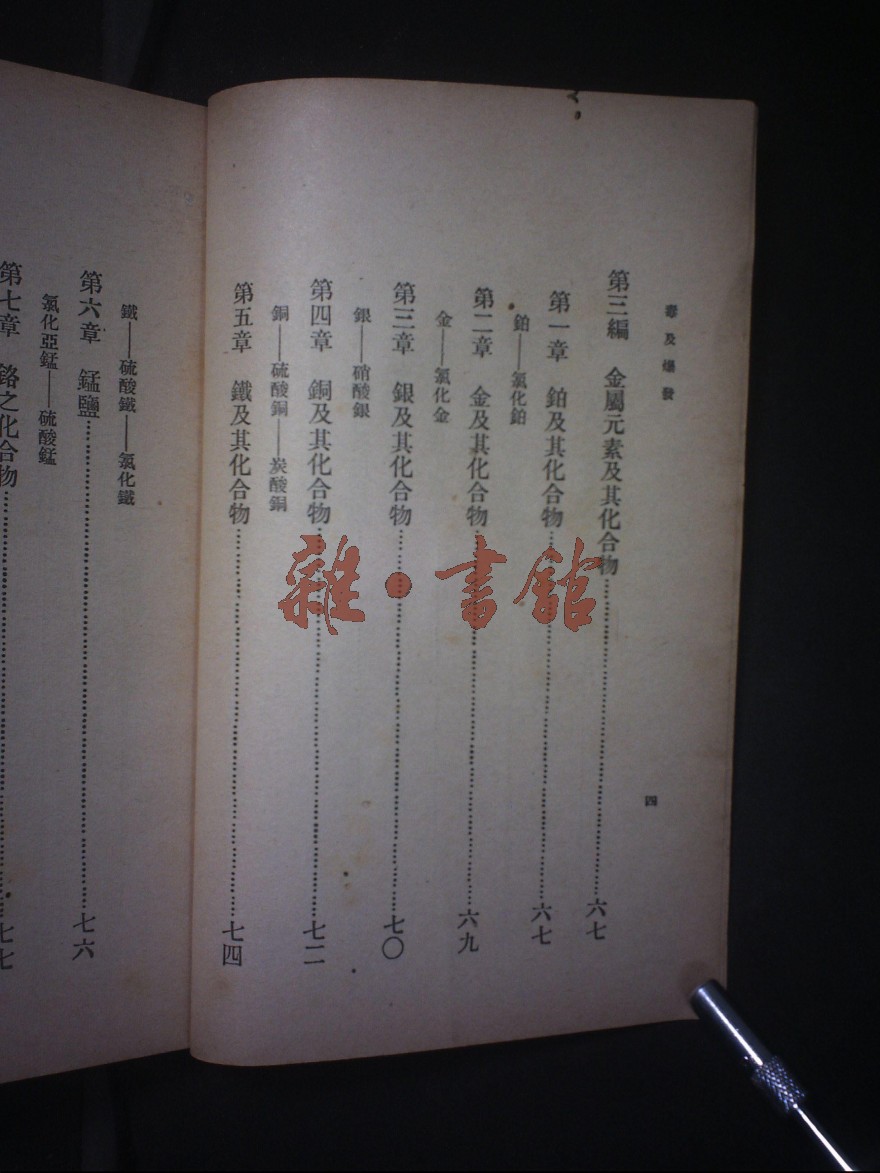 毒及爆發
四
第三編　金屬元素及其化合物……六七
第一章　鉑及其化合物……六七
鉑——氯化鉑
第二章　金及其化合物……六九
金——氯化金
第三章　銀及其化合物……七〇
銀——硝酸銀
第四章　銅及其化合物……七二
銅——硫酸銅——炭酸銅
第五章　鐵及其化合物……七四
鐵——硫酸鐵——氯化鐵
第六章　錳鹽……七六
氯化亞錳——硫酸錳
第七章　鉻之化合物……七七
雜·書館